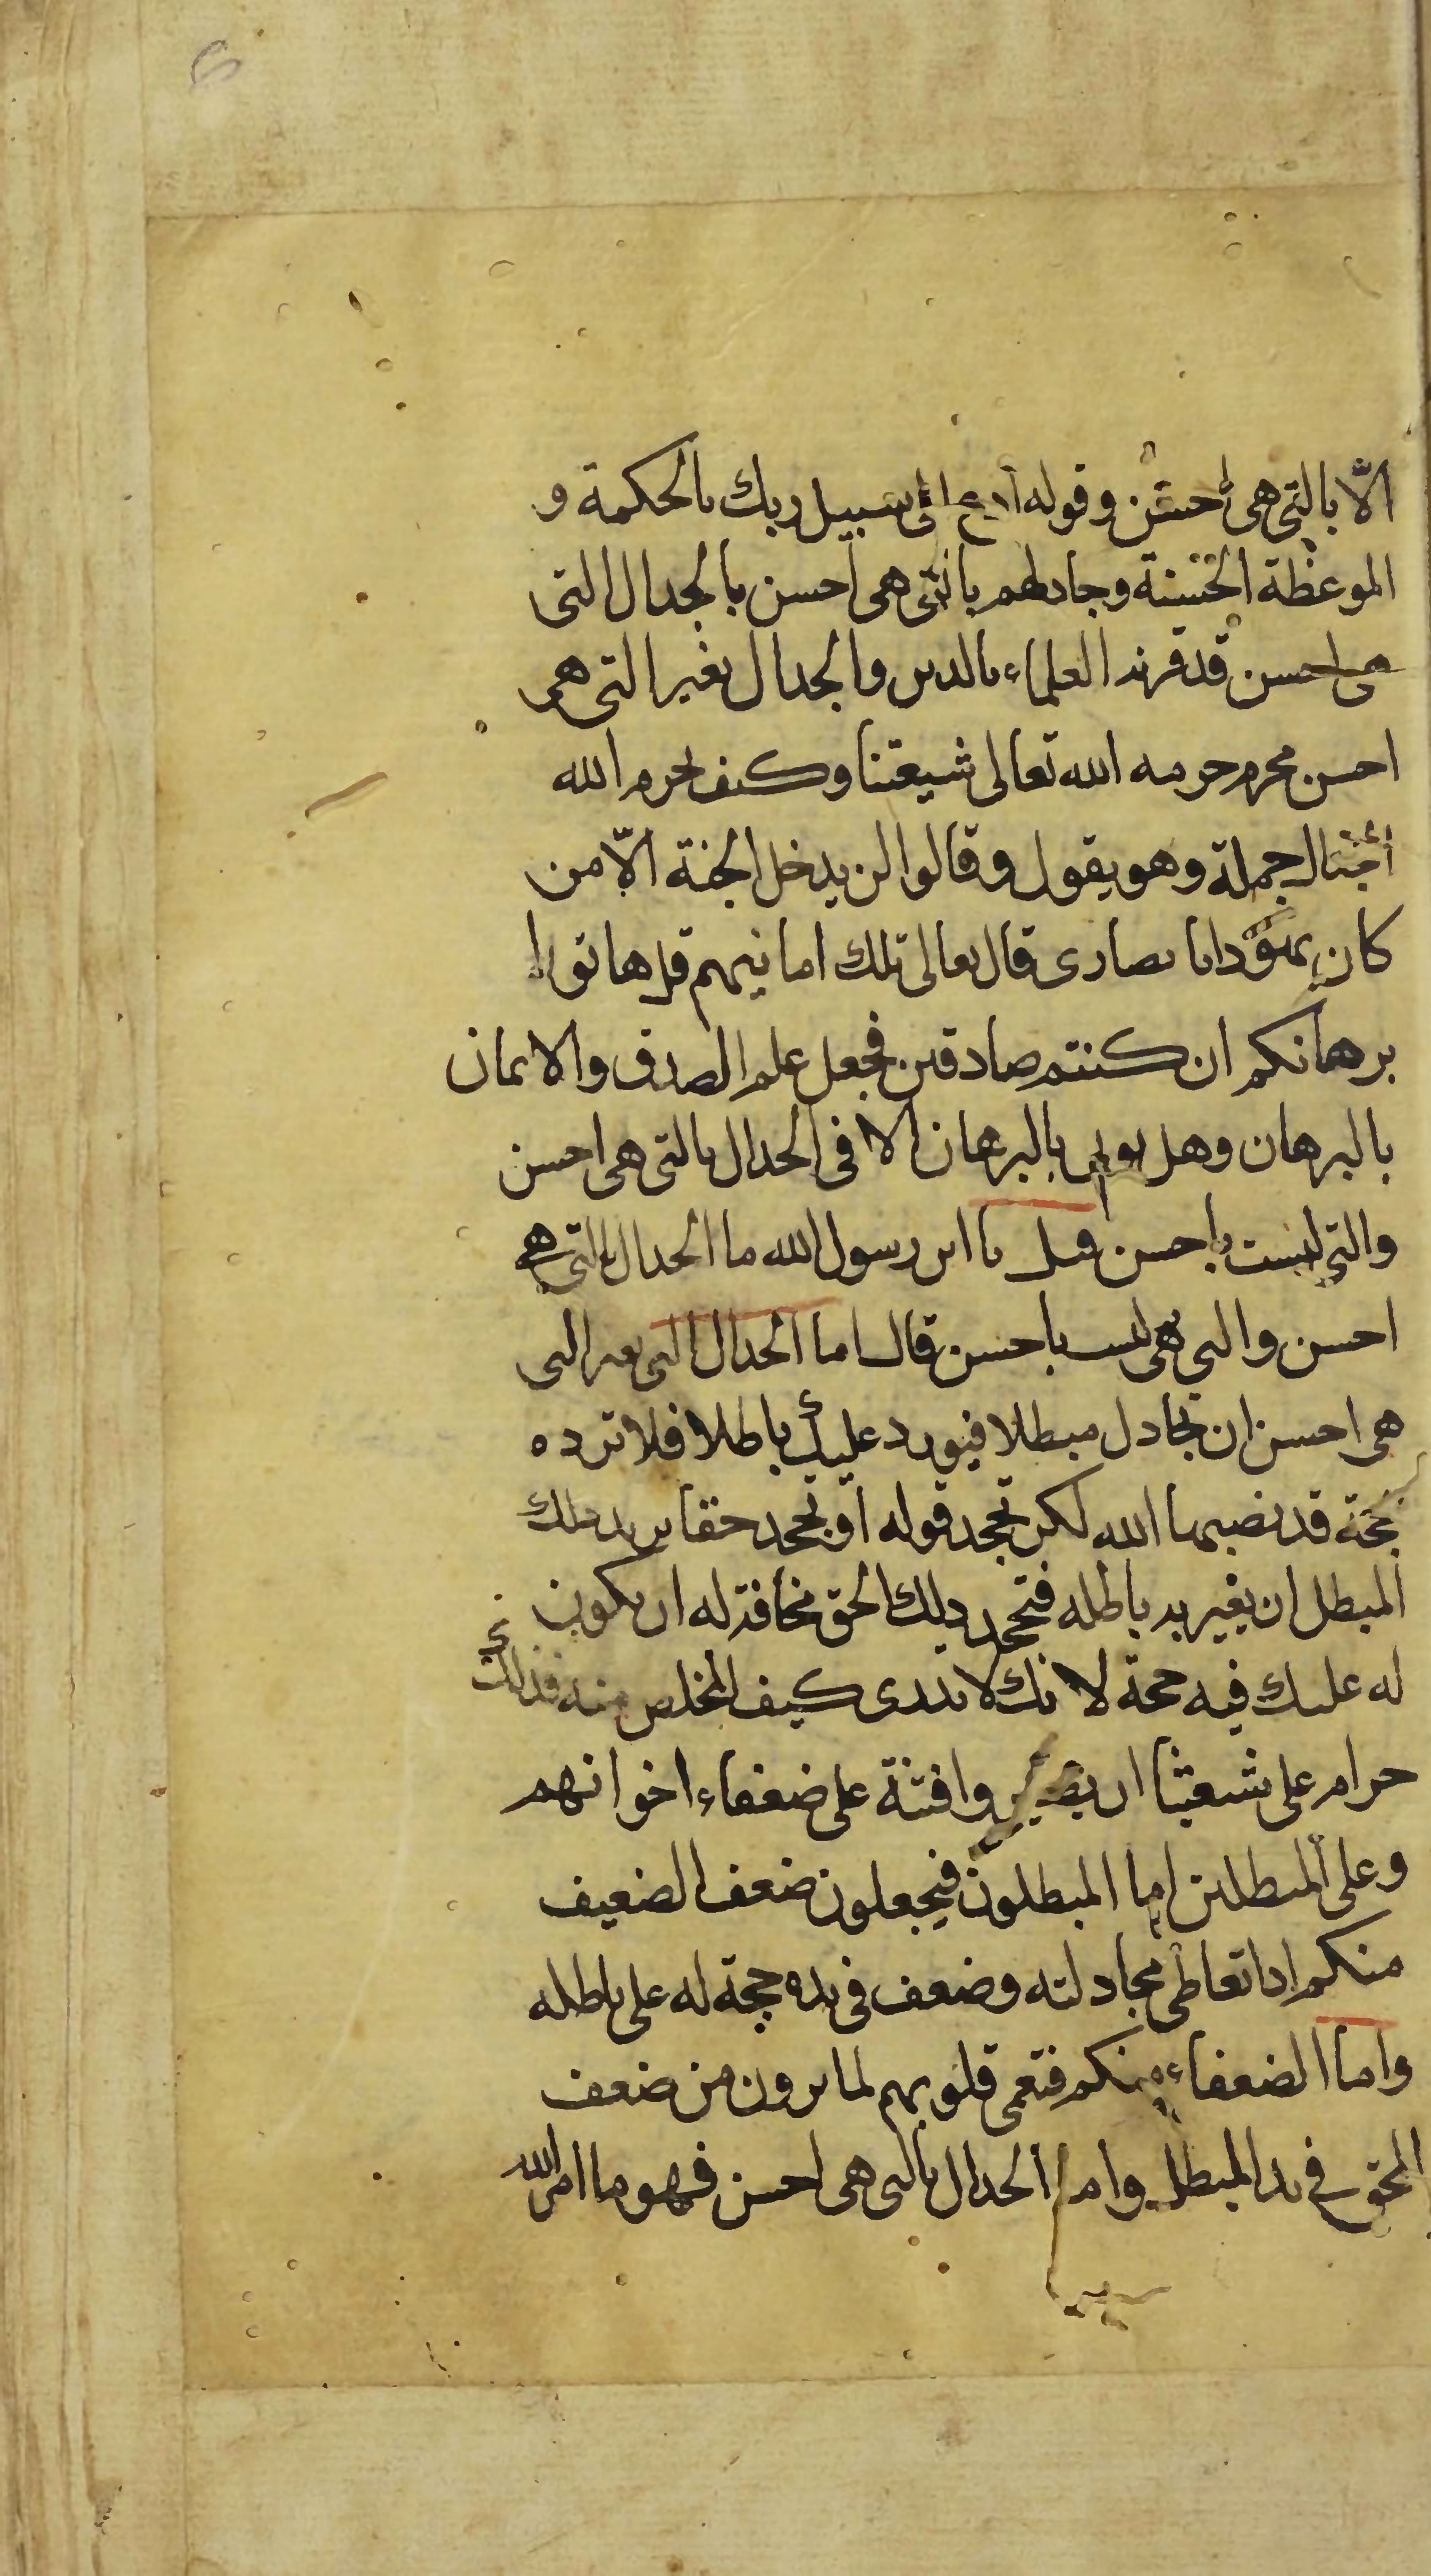 الّا بالتى هى احسن وقوله ادع الى سبيل ربك بالحكمة و
الموعظة الحسنة وجادلهم بالتى هى احسن بالجدال التى
هى احسن قد قرنه العلماء بالدين والجدال بغير التى هى
احسن محرم حرمه الله تعالى شيعتنا وكيف يحرم الله
الجدال جملة وهو يقول وقالوا لن يدخل الجنة الّا من
كان هودا او نصارى قال تعالى تلك امانيهم قل هاتوا
برهانكم ان كنتم صادقين فجعل علم الصدق والايمان
بالبرهان وهل يوتى بالبرهان الا فى الجدال بالتى هى احسن
والتى ليست باحسن قيل يا ابن رسول الله ما الجدال بالتى هى
احسن والتى هى ليست باحسن قال اما الجدال التى بغير التى
هى احسن ان تجادل مبطلا فيورد عليك باطلا فلا ترده
بحجة قد نصبها الله لكن تجحد قوله او تجحد حقا يريد ذلك
المبطل ان يعين به باطله فتجحد ذلك الحق مخافة له ان يكون
له عليك فيه حجة لانك لا تدرى كيف المخلص منه فذلك
حرام على شيعتنا ان يصيروا فتنة على ضعفاء اخوانهم
وعلى المبطلين اما المبطلون فيجعلون ضعف الضعيف
منكم اذا تعاطى مجادلته وضعف فى يده حجة له على باطله
واما الضعفاء منكم فتعمى قلوبهم لما يرون من ضعف
المحق فى يد المبطل واما الجدال بالتى هى احسن فهو ما امر الله